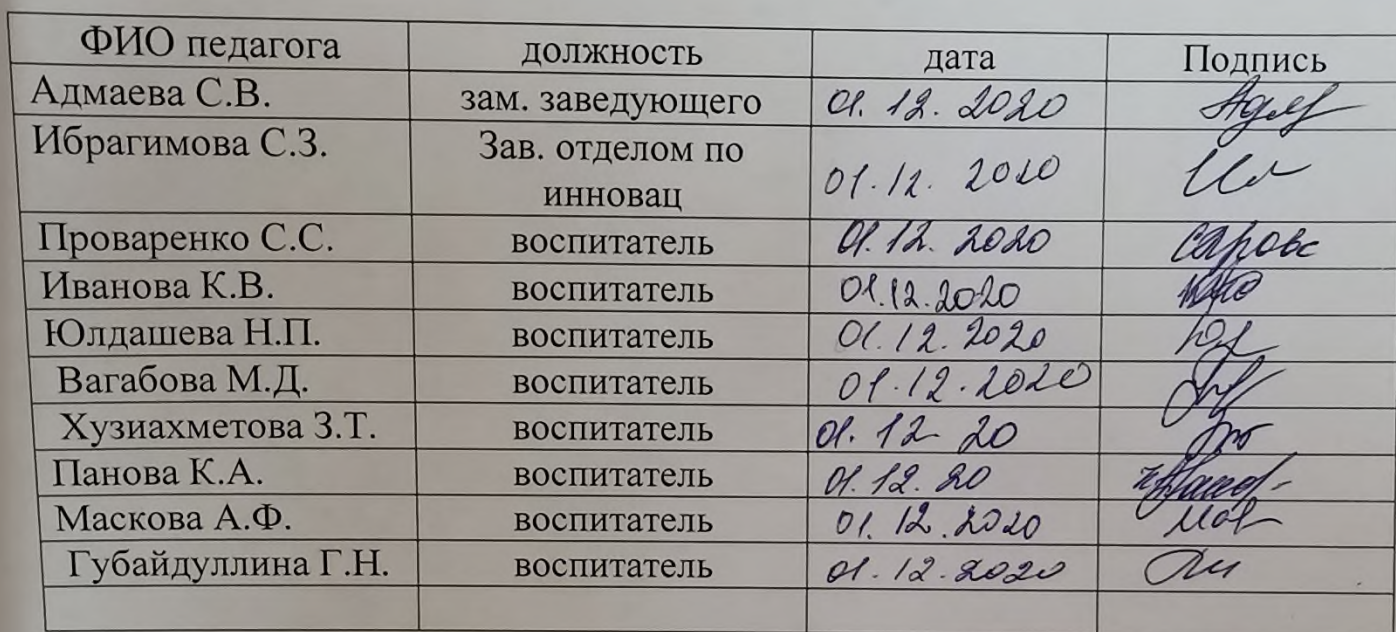 ФИО педагога должность дата Подпись
Адмаева С.В. зам. заведующего 01.12.2020
Ибрагимова С.З. Зав. отделом по
инновац 01.12. 2020
Проваренко С.С. воспитатель 01.12.2020
Иванова К.В. воспитатель 01.12.2020
Юлдашева Н.П. воспитатель 01.12.2020
Вагабова М.Д. воспитатель 01.12.2020
Хузиахметова З.Т. воспитатель 01.12 20
Панова К.А. воспитатель 01.12.20
Маскова А.Ф. воспитатель 01.12.2020
Губайдуллина Г.Н. воспитатель 01.12.2020